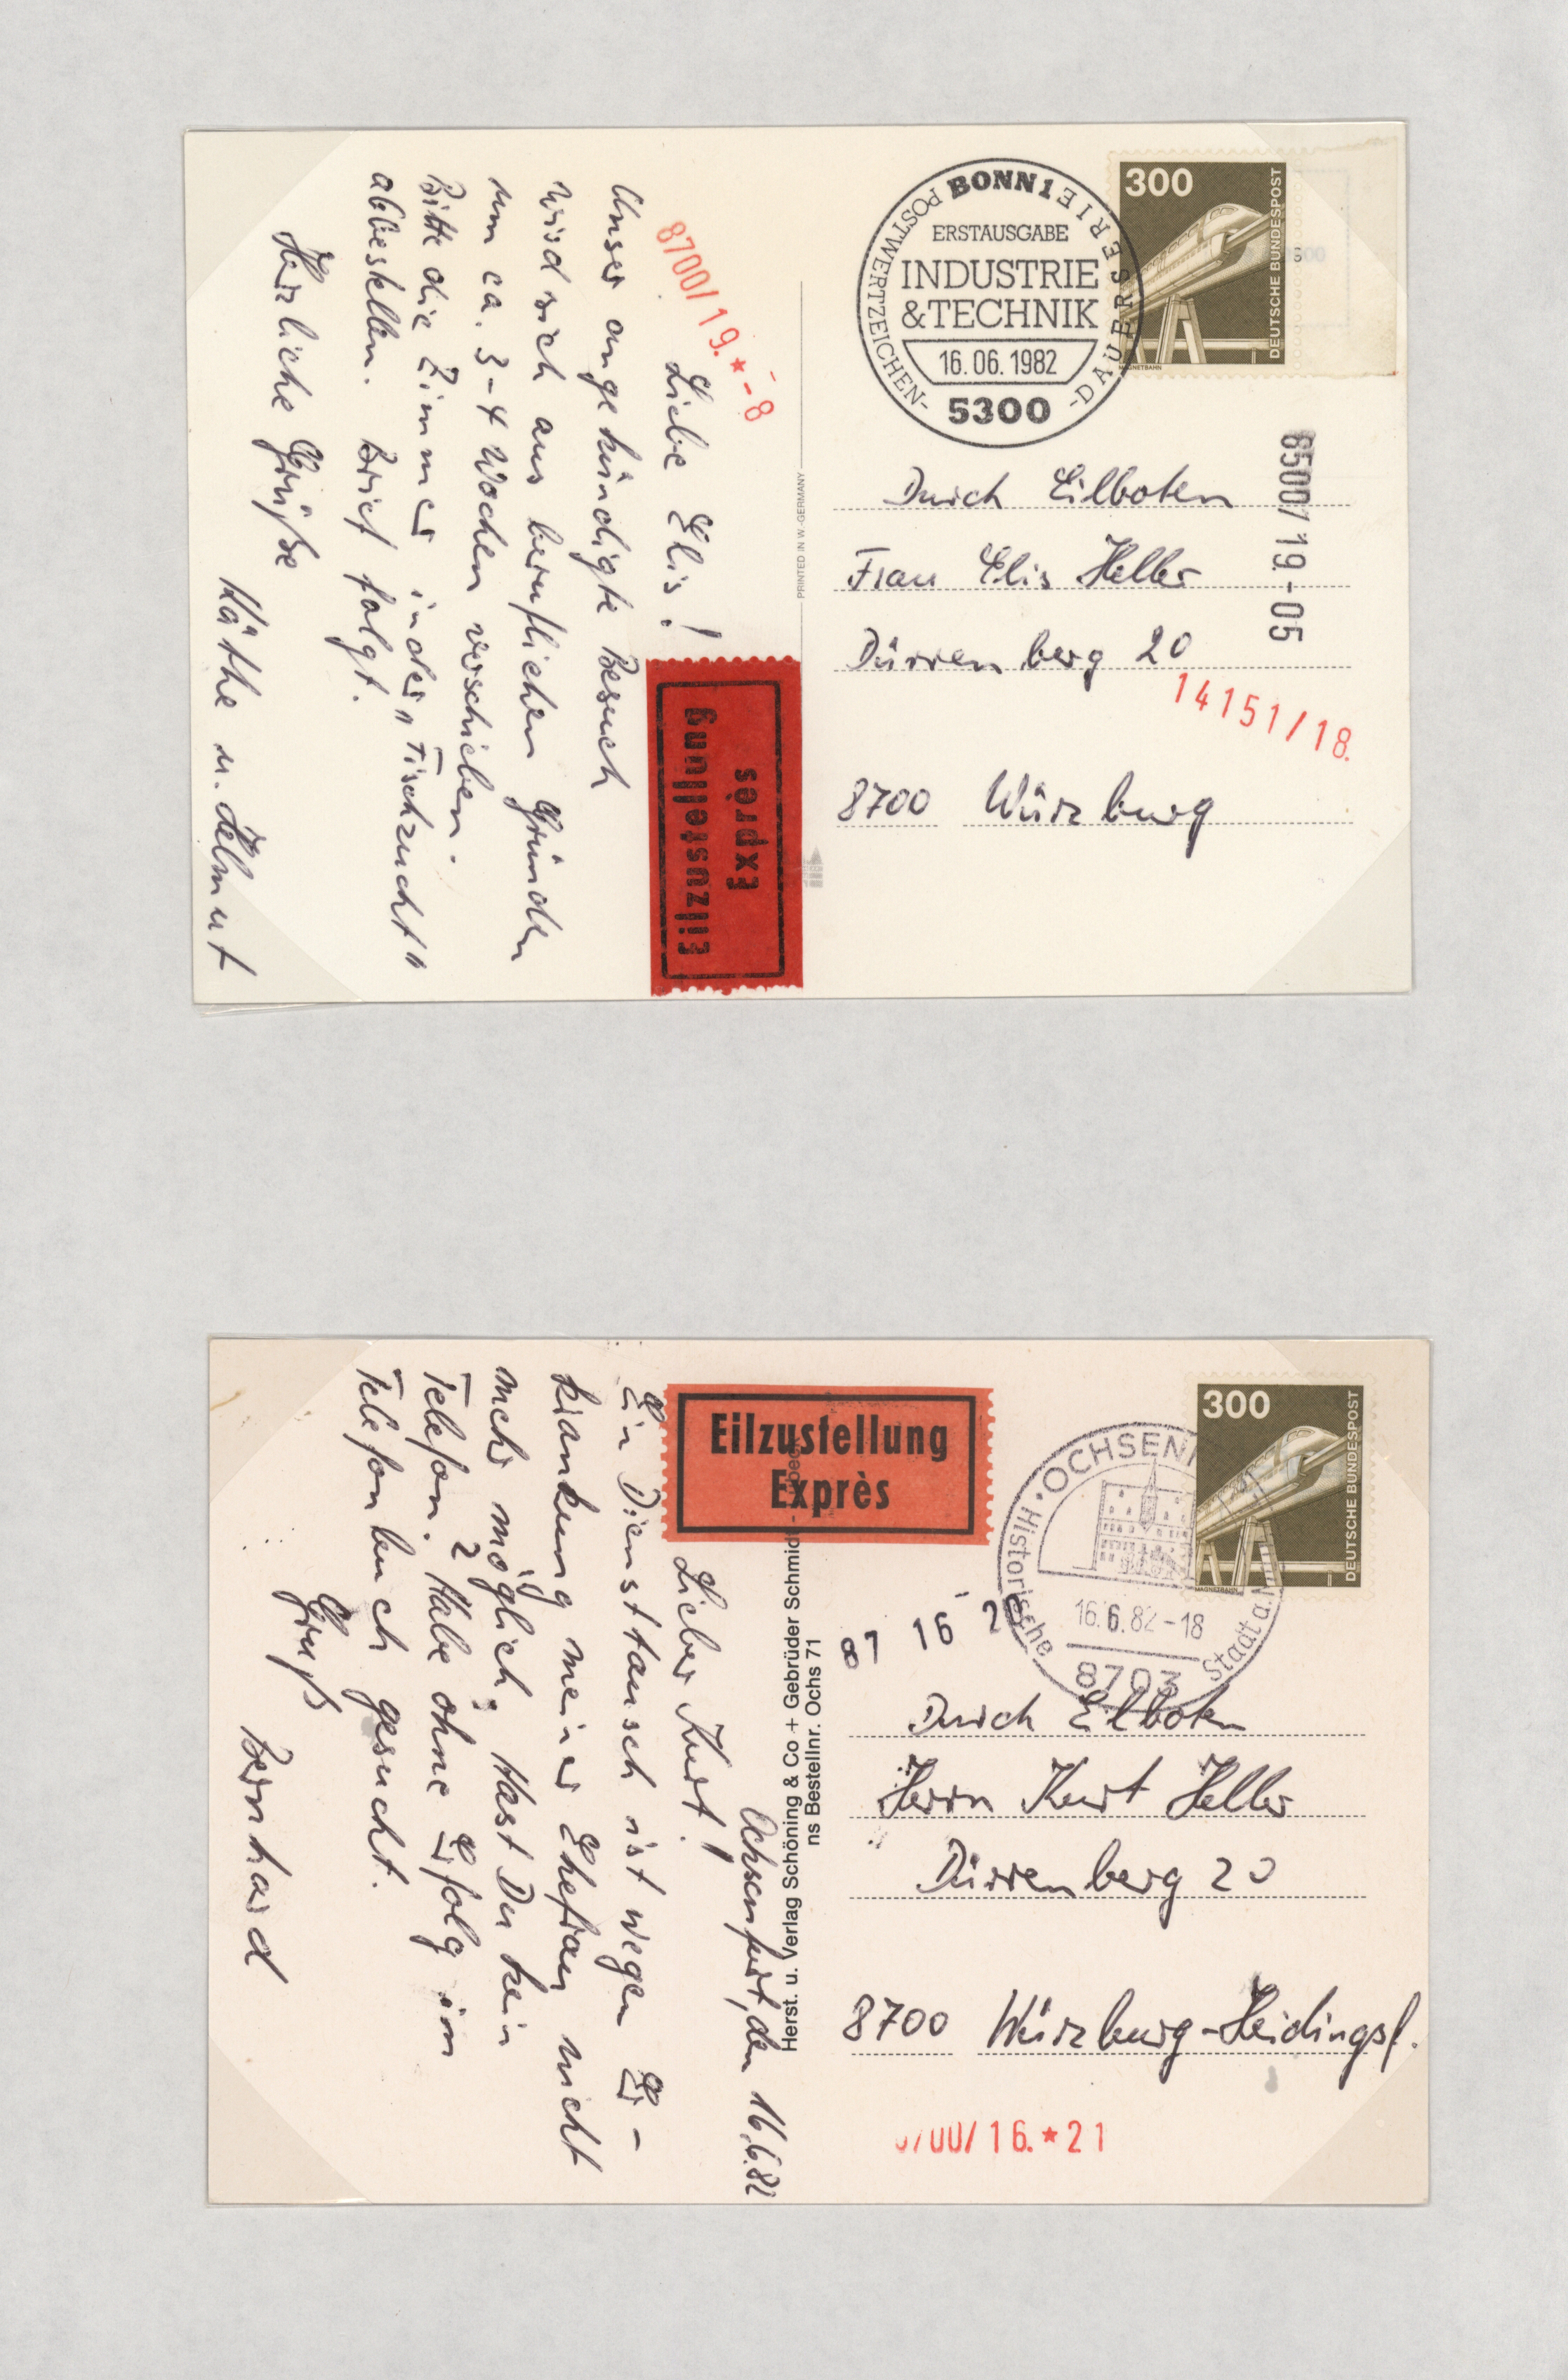 Liebe Elis!
Unser angekündigte Besuch
wird sich aus beruflichen Gründen
um ca. 3-4 Wochen verschieben.
Bitte die Zimmer in der "Fischzucht"
abbestellen. Brief folgt.
Herzliche Grüße
Käthe u. Helmut
8700/19.*-8
Eilzustellung
Exprès
PRINTED IN W.-GERMANY
BONN 1
POSTWERTZEICHEN-
-DAUERSERIE
ERSTAUSGABE
INDUSTRIE
&TECHNIK
16.06.1982
5300
300
DEUTSCHE BUNDESPOST
MAGNETBAHN
Durch Eilboten
Frau Elis Heller
Dürrenberg 20
8700 Würzburg
8500/19.-05
14151/18.
Ochsenfurt, den 16.6.82
Lieber Kurt!
Ein Diensttausch ist wegen Er-
krankung meiner Ehefrau nicht
mehr möglich. Hast Du kein
Telefon? Habe ohne Erfolg im
Telefonbuch gesucht.
Gruß
Bernhard
Eilzustellung
Exprès
Herst. u. Verlag Schöning & Co + Gebrüder Schmidt -
ns Bestellnr. Ochs 71
OCHSENF
Historische
Stadt a.
16.6.82-18
8703
300
DEUTSCHE BUNDESPOST
MAGNETBAHN
87 16 2
Durch Eilboten
Herrn Kurt Heller
Dürrenberg 20
8700 Würzburg-Heidingsf.
700/16.*21